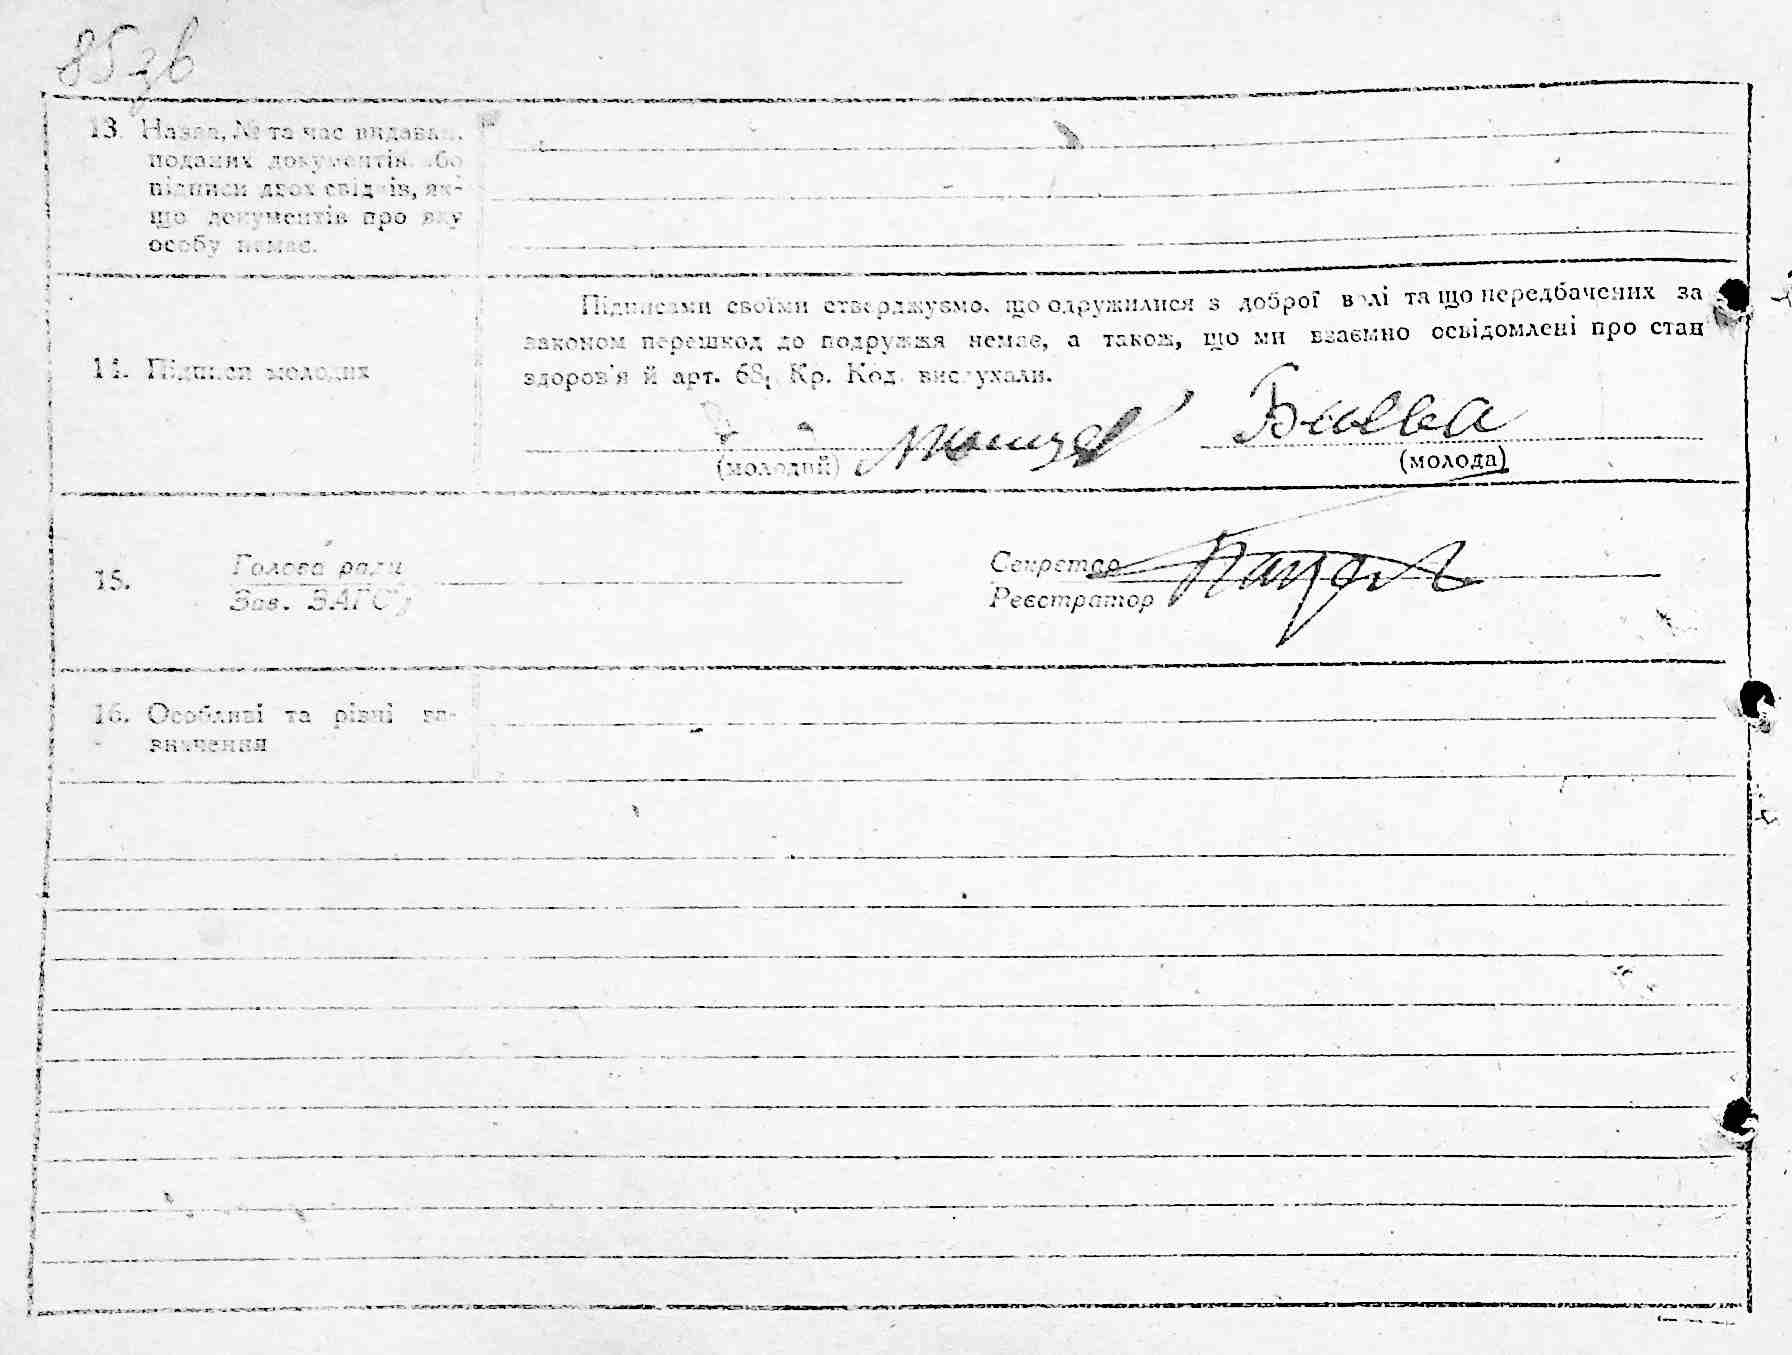 85 зв
13. Назва, № та час видаван.
поданих документів або
підписи двох свідків, як-
що документів про яку
особу немає.
Підписами своїми стверджуємо, що одружилися з доброї волі та що передбачених за
законом перешкод до подружжя немає, а також, що ми взаємно освідомлені про стан
14. Підписи молодих
здоров'я й арт. 68, Кр. Код. вислухали.
(молодий)
(молода)
15.
Голова ради
Зав. ЗАГС'у
Секретар
Реєстратор
16. Особливі та різні за-
значення